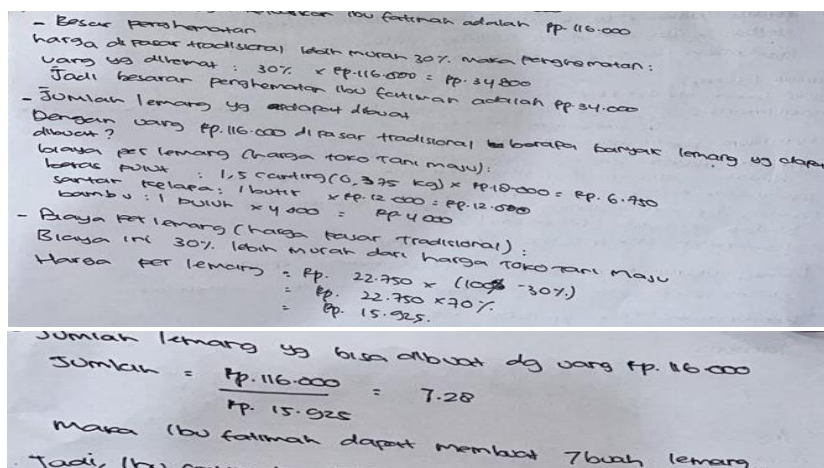 ibu fatimah adalah Rp. 116.000
- Besar penghematan
harga di pasar tradisional lebih murah 30% maka penghematan :
uang yg dihemat : 30% x Rp.116.000 = Rp. 34.800
Jadi besaran penghematan ibu fatimah adalah Rp. 34.000
- Jumlah lemang yg dapat dibuat
Dengan uang Rp. 116.000 di pasar tradisional berapa banyak lemang yg dapat
dibuat ?
biaya per lemang (harga toko Tani maju) :
beras pulut : 1,5 canting (0,375 kg) x Rp.18.000 = Rp. 6.750
santan kelapa : 1 butir x Rp. 12.000 = Rp. 12.000
bambu : 1 buluh x 4.000 = Rp 4.000
- Biaya per lemang (harga pasar Tradisional) :
Biaya ini 30% lebih murah dari harga TOKO TANI Maju
Harga per lemang = Rp. 22.750 x (100% - 30%)
= Rp. 22.750 x 70%
= Rp. 15.925.
Jumlah lemang yg bisa dibuat dg uang Rp. 116.000
Jumlah = Rp. 116.000 / Rp. 15.925 = 7.28
Maka Ibu fatimah dapat membuat 7 buah lemang
Jadi, Ibu